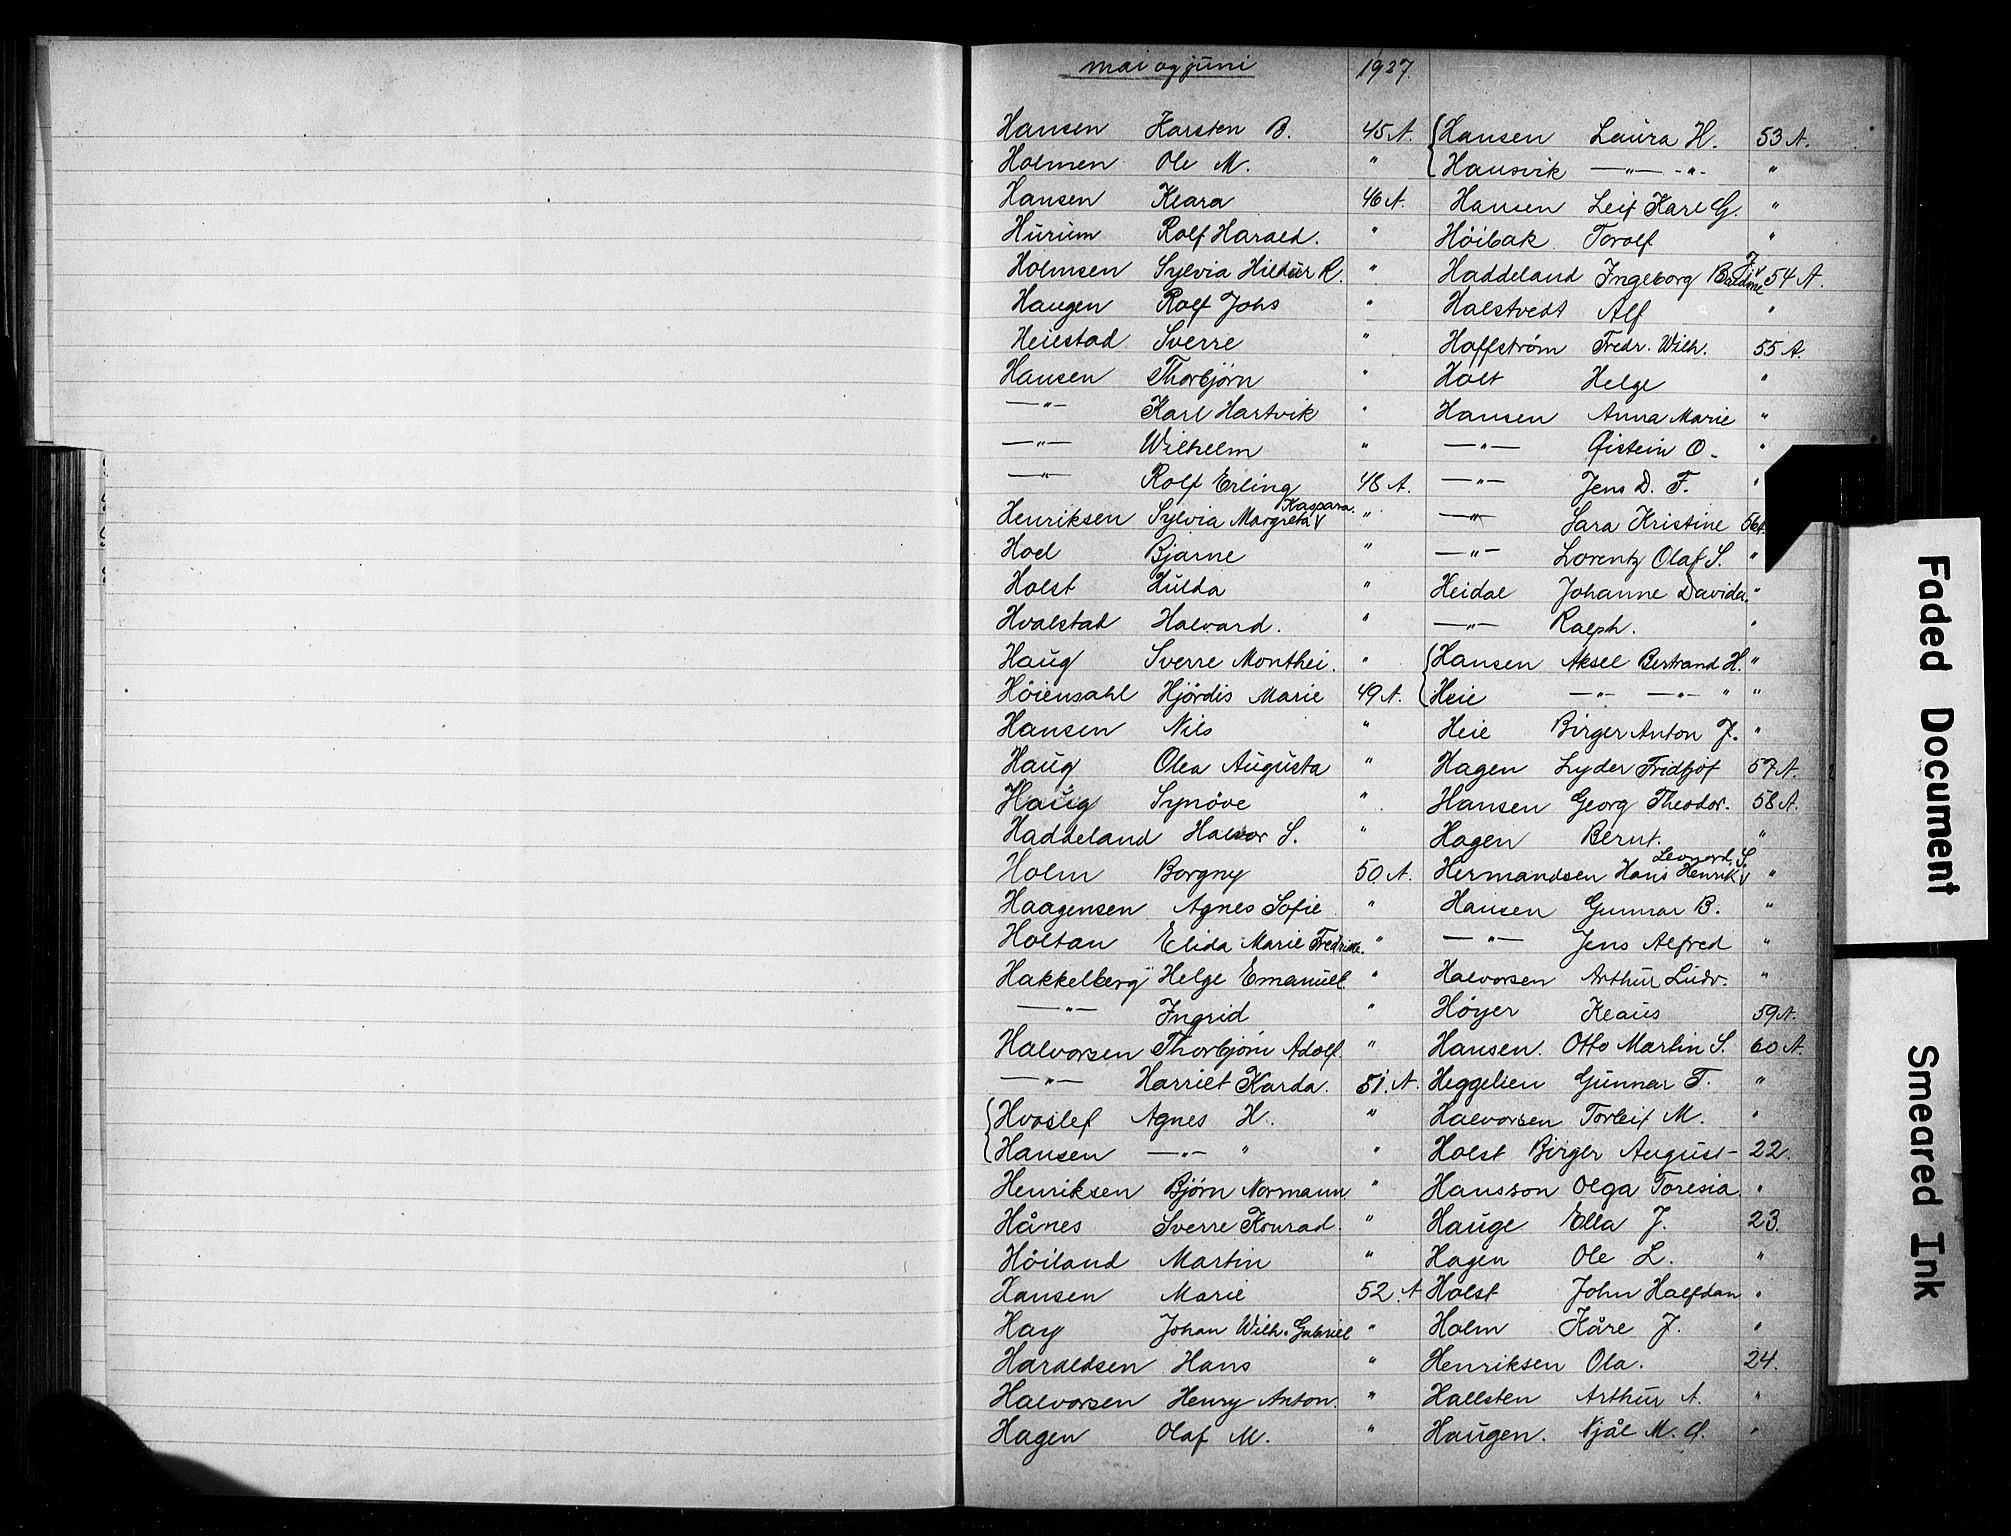 mai og juni 1927
Hansen Karsten B. 45 A.
Holmen Ole M. "
Hansen Klara 46 A.
Hurum Rolf Harald. "
Holmsen Sylvia Hildur R. "
Haugen Rolf Johs "
Heiestad Sverre "
Hansen Thorbjørn "
—"— Karl Hartvik "
—"— Wilhelm "
—"— Rolf Erling 48 A.
Henriksen Sylvia Margreta Kaspara. "
Hoel Bjarne "
Holst Hulda "
Hvalstad Halvard. "
Haug Sverre Monthei. "
Höiensahl Hjördis Marie 49 A.
Hansen Nils "
Haug Olea Augusta "
Haug Synöve "
Haddeland Halvor S. "
Holm Borgny 50. A.
Haagensen Agnes Sofie "
Holtan Elida Marie Fredrikke. "
Hakkelberg Helge Emanuel "
—"— Ingrid "
Halvorsen Thorbjørn Adolf. "
—"— Harriet Karda. 51. A.
Hvoslef Agnes H. "
Hansen —"— " "
Henriksen Bjørn Normann. "
Hånes Sverre Konrad. "
Höiland Martin "
Hansen Marie 52. A
Hay Johan Wilh. Gabriel "
Haraldsen Hans "
Halvorsen Henry Anton. "
Hagen Olaf M. "
Hansen Laura H. 53 A.
Hausvik —"— -"- "
Hansen Leif Karl G. "
Höibak Torolf "
Haddeland Ingeborg Baldine J. 54 A.
Halstvedt Alf "
Haffstrøm Fredr. Wilh. 55 A.
Holt Helge "
Hansen Anna Marie "
—"— Øistein O. "
—"— Jens D. F. "
—"— Sara Kristine 56A
—"— Lorentz Olaf S. "
Heidal Johanne Davida. "
—"— Ralph. "
Hansen Aksel Bertrand H. "
Heie —"— —"— " "
Heie Birger Anton J. "
Hagen Lyder Fridtjof 57 A.
Hansen Georg Theodor. 58 A.
Hagen Bernt. "
Hermandsen Hans Henrik Leonard. S. "
Hansen Gunnar B. "
—"— Jens Alfred "
Halvorsen Arthur Ludv. "
Høyer Klaus 59 A.
Hansen. Otto Martin S. 60 A.
Heggelien Gunnar T. "
Halvorsen Torleif M. "
Holst Birger August- 22.
Hansson Olga Toresia. "
Hauge Ella J. 23.
Hagen Ole L. "
Holst John Halfdan "
Holm Kåre J. "
Henriksen Ola. 24.
Hallsten Arthur A. "
Haugen. Njål M. O. "
Faded Document
Smeared Ink